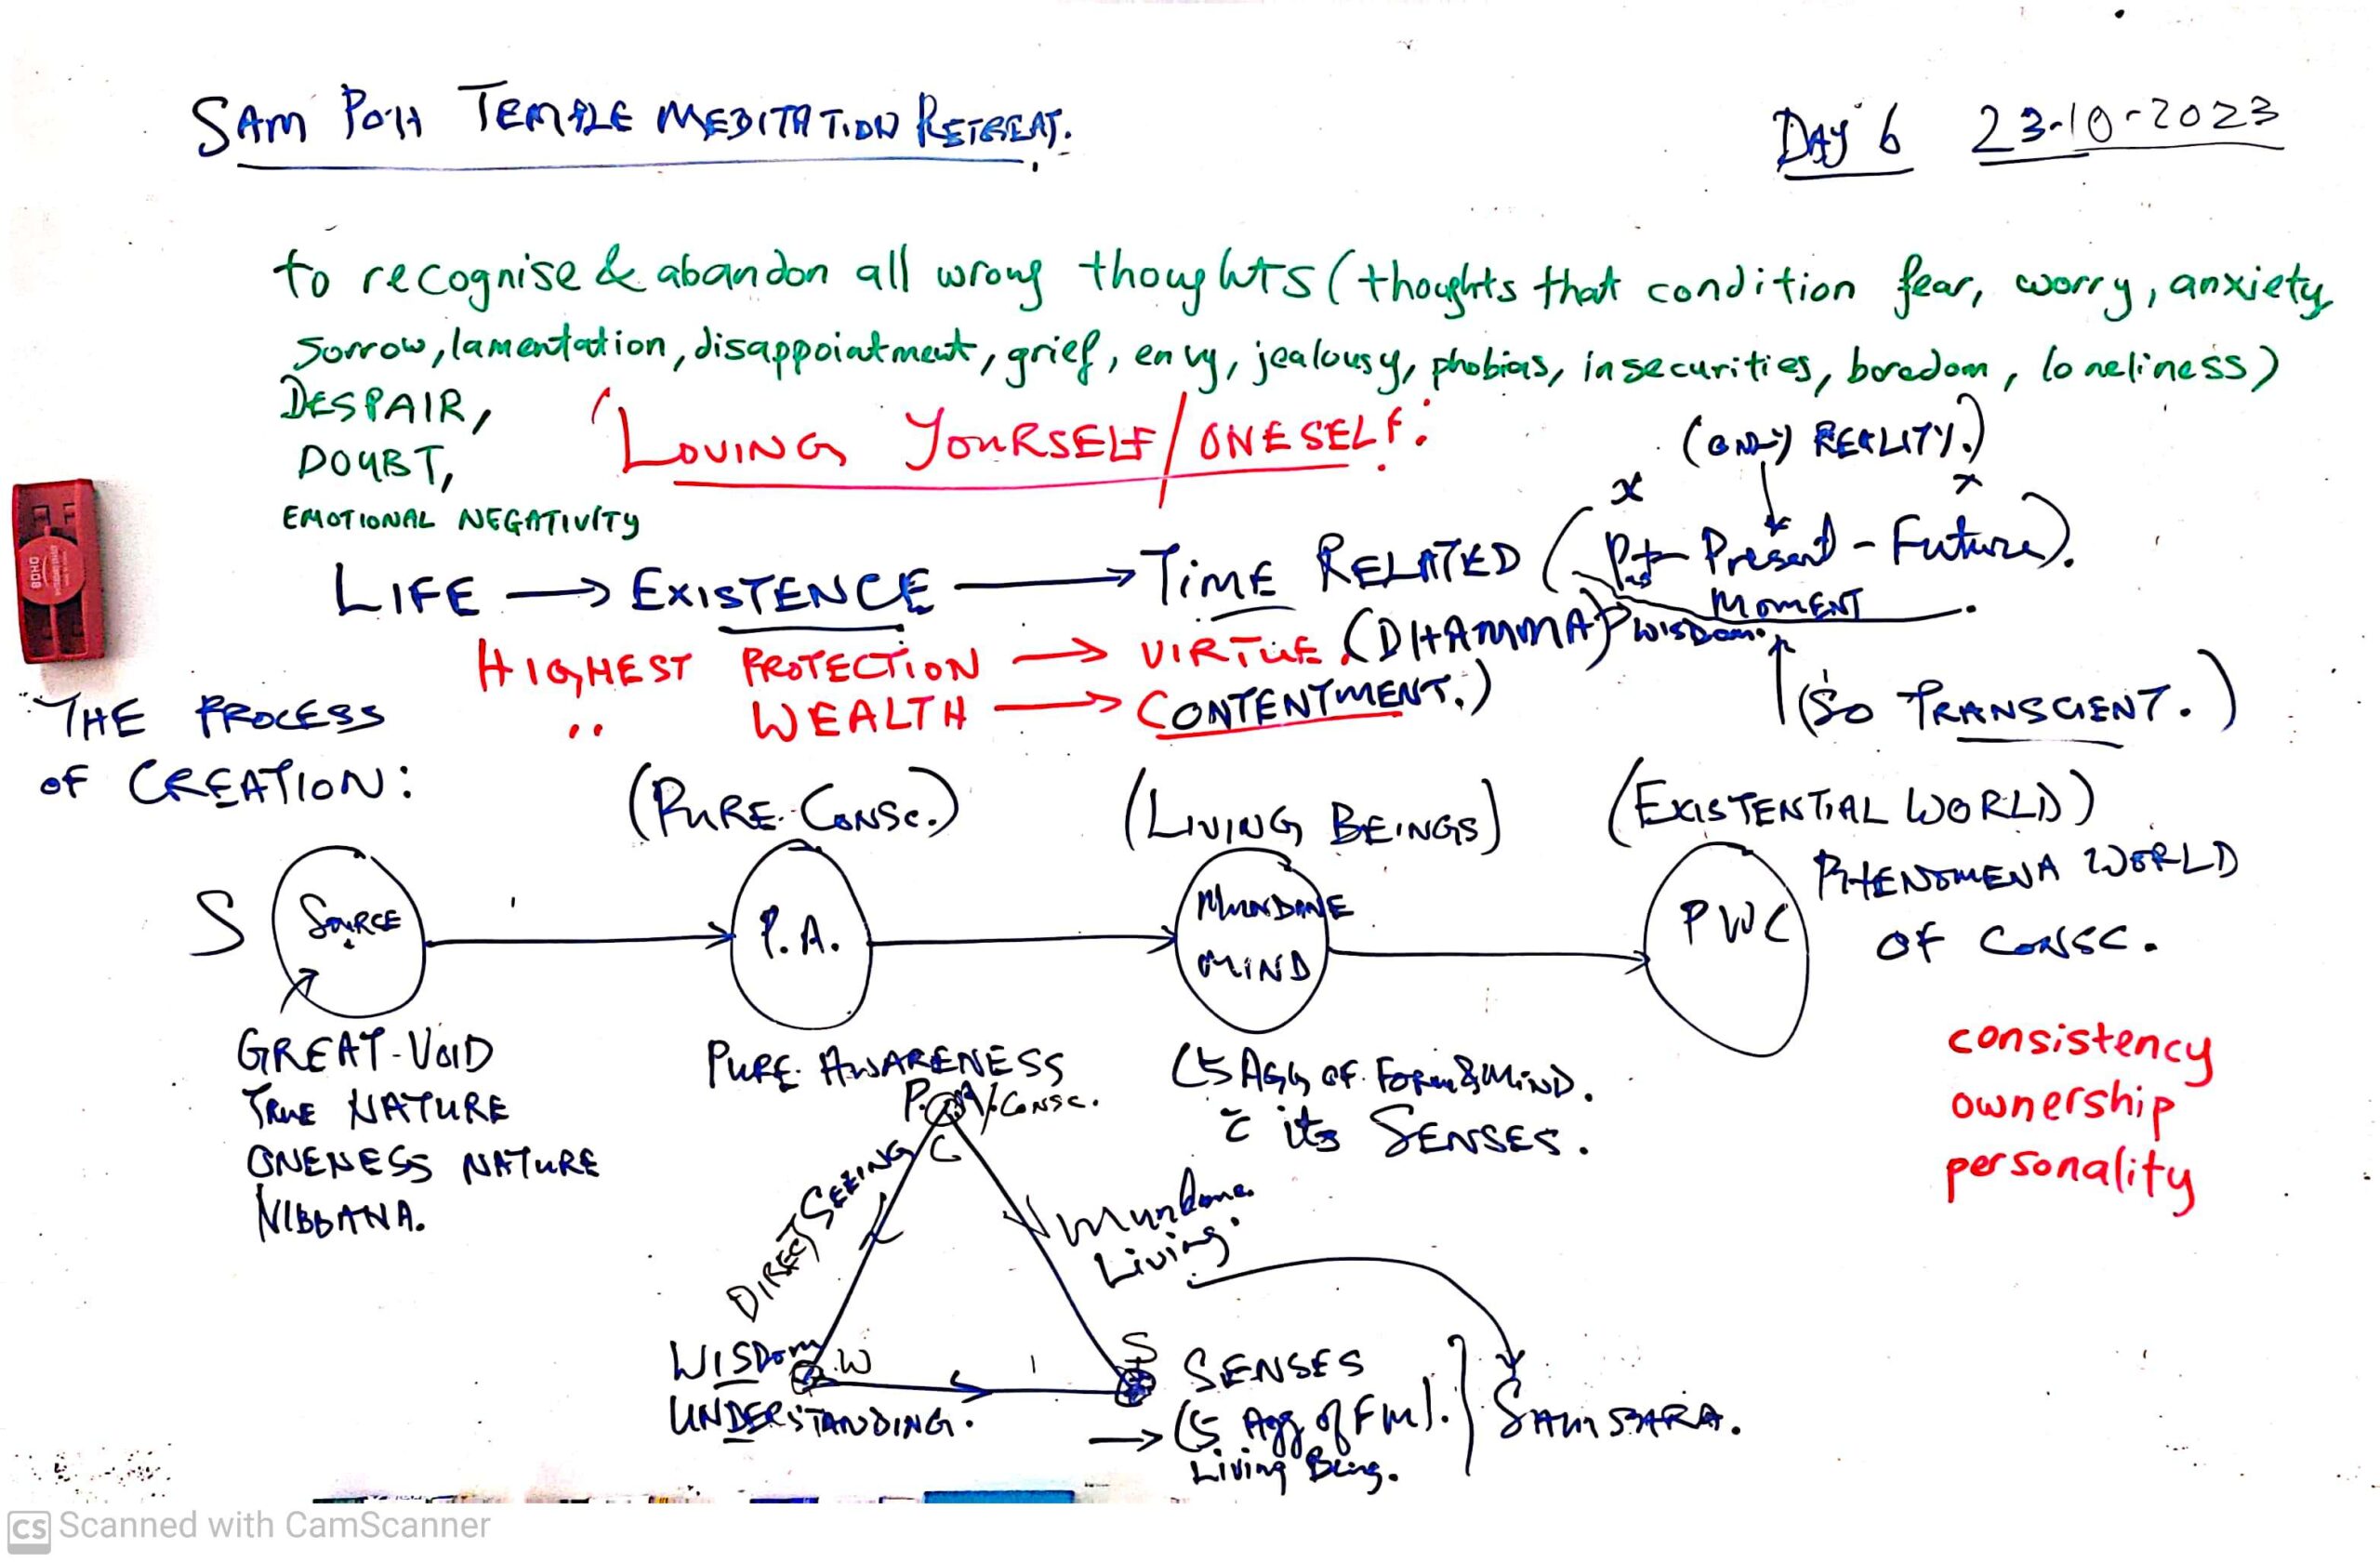 SAM POH TEMPLE MEDITATION RETREAT.
DAY 6 23-10-2023
to recognise & abandon all wrong thoughts (thoughts that condition fear, worry, anxiety
sorrow, lamentation, disappointment, grief, envy, jealousy, phobias, insecurities, boredom, loneliness)
DESPAIR,
DOUBT,
EMOTIONAL NEGATIVITY
LOVING YOURSELF/ONESELF:
(ONLY REALITY.)
x x
LIFE → EXISTENCE → TIME RELATED (Past - Present - Future).
MOMENT
HIGHEST PROTECTION → VIRTUE (DHAMMA) → WISDOM.
.. WEALTH → CONTENTMENT.)
(SO TRANSCIENT.)
"THE PROCESS
OF CREATION:
(PURE-CONSC.)
(LIVING BEINGS)
(EXISTENTIAL WORLD)
S
SOURCE
P.A.
MUNDANE
MIND
PWC
PHENOMENA WORLD
OF CONSC.
GREAT-VOID
TRUE NATURE
ONENESS NATURE
NIBBANA.
PURE AWARENESS
P.A/CONSC.
C
(5 AGG OF FORM & MIND.
c̄ its SENSES.
consistency
ownership
personality
DIRECT SEEING
Mundane
Living.
WISDOM W
UNDERSTANDING.
S
SENSES
→ (5 Agg of FM).
Living Being.
SAMSARA.
BOHO
CS Scanned with CamScanner